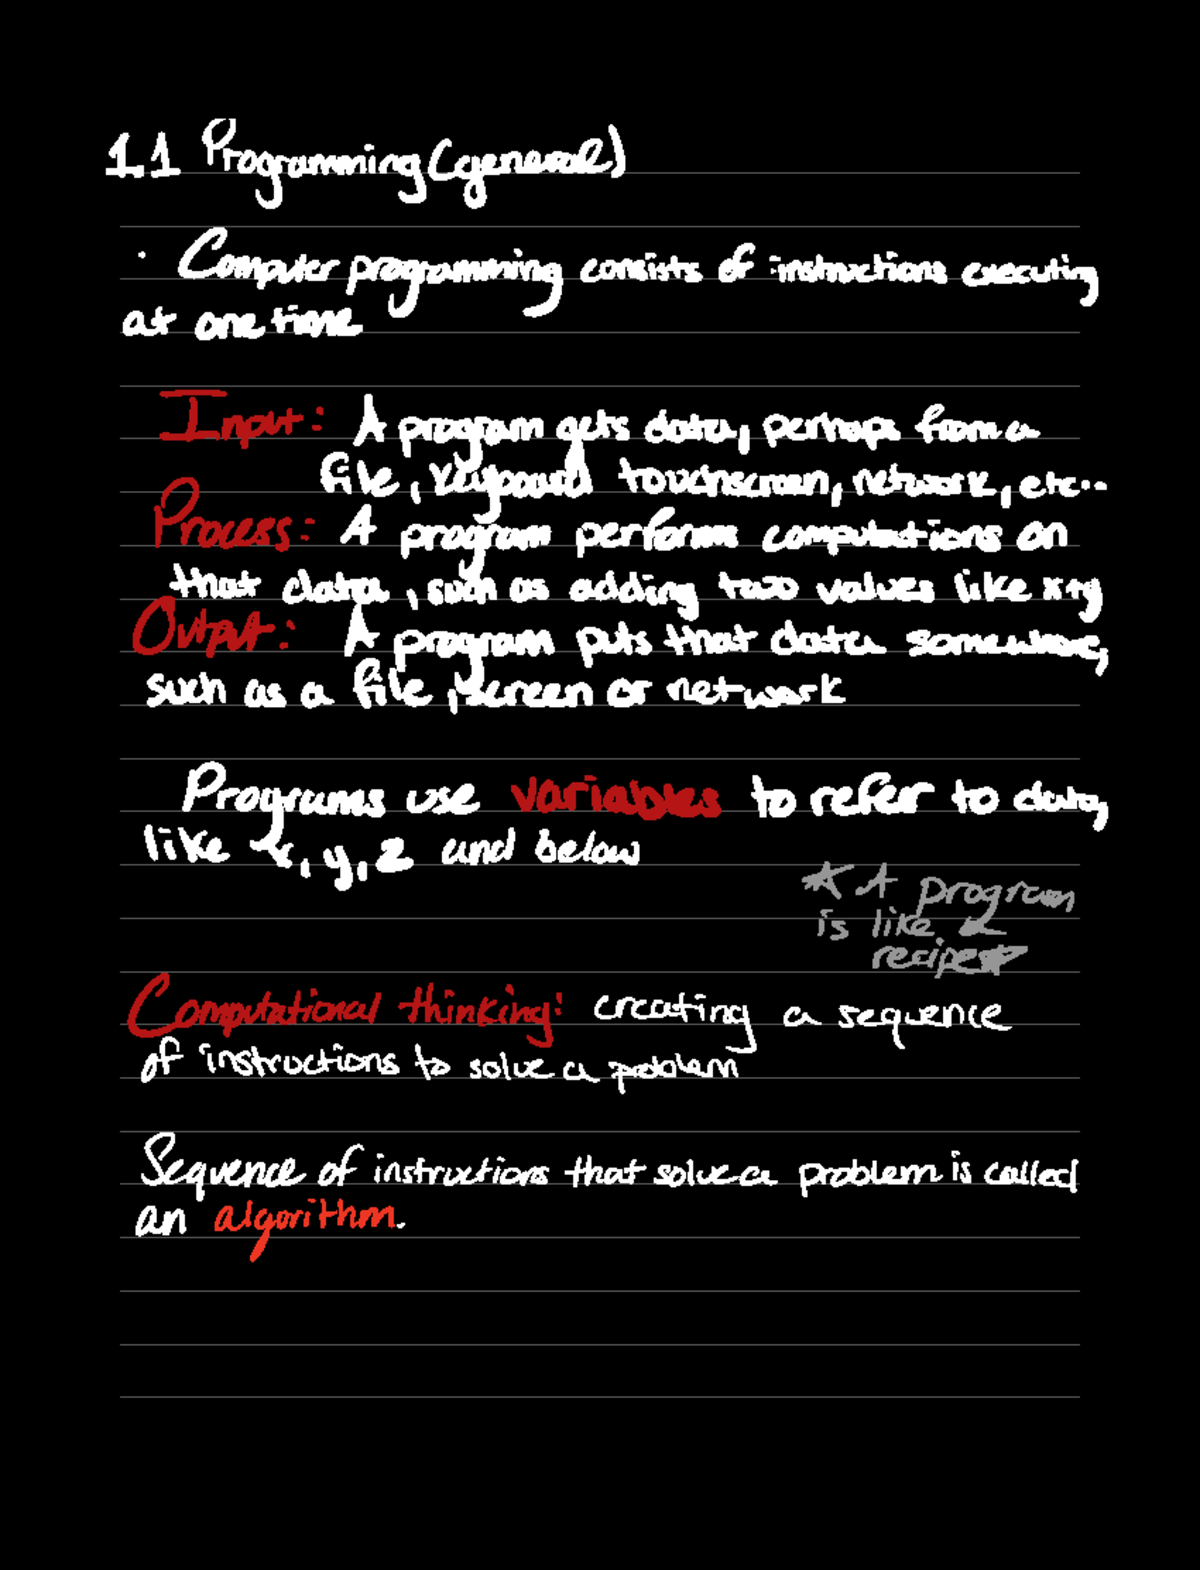 1.1 Programming (general)
· Computer programming consists of instructions executing
at one time
Input: A program gets data, perhaps from a
file, keyboard touchscreen, network, etc..
Process: A program performs computations on
that data, such as adding two values like x+y
Output: A program puts that data somewhere,
such as a file, screen or network
Programs use variables to refer to data,
like x, y, z and below
* A program
is like a
recipe*
Computational thinking: creating a sequence
of instructions to solve a problem
Sequence of instructions that solve a problem is called
an algorithm.